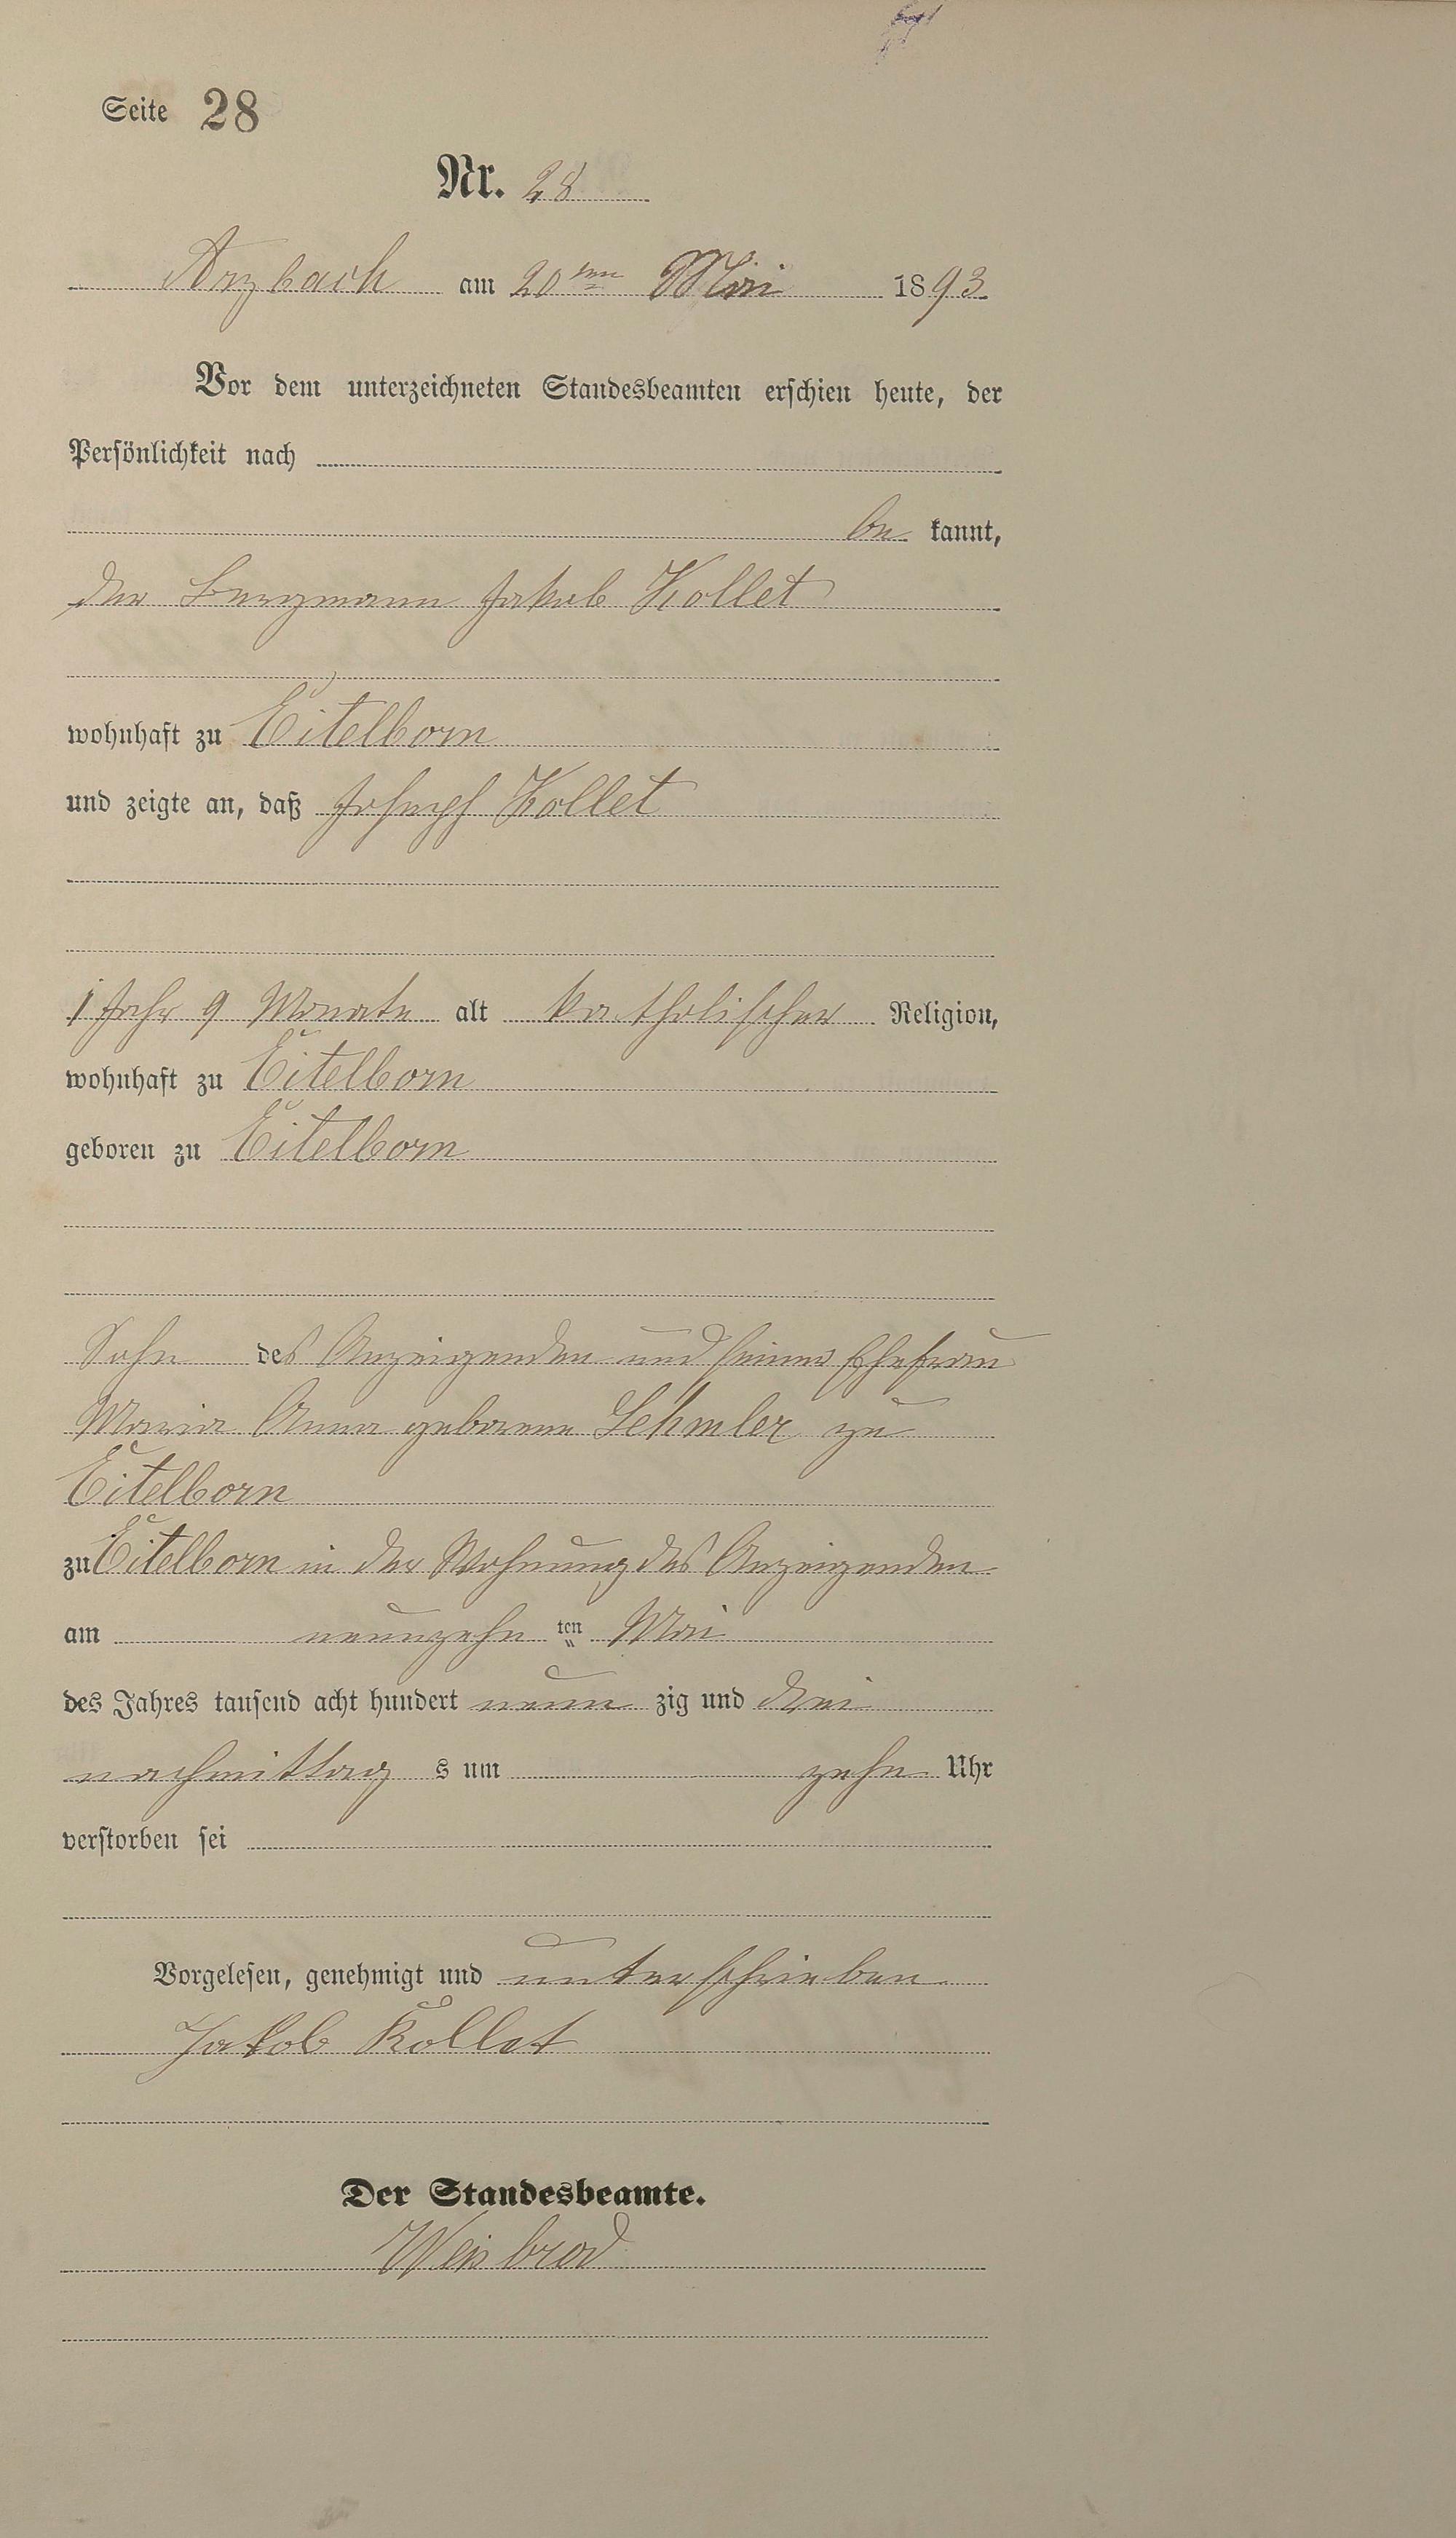 Seite 28
Nr. 28
Arzbach am 20ten Mai 1893
Vor dem unterzeichneten Standesbeamten erschien heute, der
Persönlichkeit nach
be kannt,
der Bergmann Jakob Kollet
wohnhaft zu Eitelborn
und zeigte an, daß Joseph Kollet
1 Jahr 9 Monate alt katholischer Religion,
wohnhaft zu Eitelborn
geboren zu Eitelborn
Sohn des Anzeigenden und seiner Ehefrau
Maria Anna geborene Lehmler zu
Eitelborn
zu Eitelborn in der Wohnung des Anzeigenden
am neunzehn ten Mai
des Jahres tausend acht hundert neun zig und drei
nachmittag s um zehn Uhr
verstorben sei
Vorgelesen, genehmigt und unterschrieben
Jakob Kollet
Der Standesbeamte.
Weisbrod